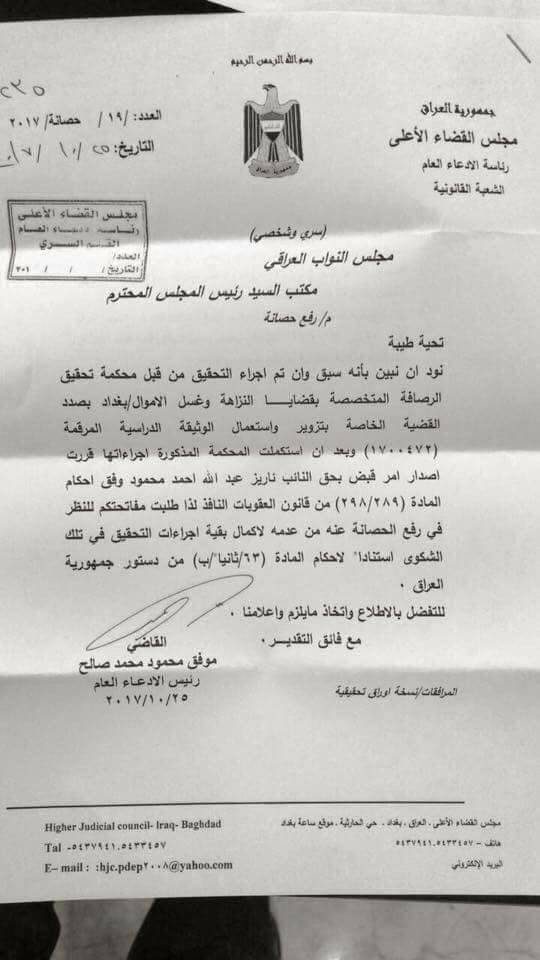 بسم الله الرحمن الرحيم
جمهورية العراق
مجلس القضاء الأعلى
رئاسة الادعاء العام
الشعبة القانونية
٢٣٥
العدد: /١٩/ حصانة/ ٢٠١٧
التاريخ: ٢٥/ ١٠/
مجلس القضاء الأعلى
رئاسة الادعاء العام
القلم السري
العدد/
التاريخ / / ٢٠١
(سري وشخصي)
مجلس النواب العراقي
مكتب السيد رئيس المجلس المحترم
م/ رفع حصانة
تحية طيبة
نود ان نبين بأنه سبق وان تم اجراء التحقيق من قبل محكمة تحقيق
الرصافة المتخصصة بقضايا النزاهة وغسل الاموال/بغداد بصدد
القضية الخاصة بتزوير واستعمال الوثيقة الدراسية المرقمة
(١٧٠٠٤٧٢) وبعد ان استكملت المحكمة المذكورة اجراءاتها قررت
اصدار امر قبض بحق النائب ناريز عبد الله احمد محمود وفق احكام
المادة (٢٩٨/٢٨٩) من قانون العقوبات النافذ لذا طلبت مفاتحتكم للنظر
في رفع الحصانة عنه من عدمه لاكمال بقية اجراءات التحقيق في تلك
الشكوى استنادا" لاحكام المادة (٦٣/ثانيا"/ب) من دستور جمهورية
العراق .
للتفضل بالاطلاع واتخاذ مايلزم واعلامنا .
مع فائق التقديـر.
القاضي
موفق محمود محمد صالح
رئيس الادعاء العام
٢٠١٧/١٠/٢٥
المرافقات/نسخة اوراق تحقيقية
مجلس القضاء الأعلى . العراق . بغداد . حي الحارثية . موقع ساعة بغداد
هاتف – ٥٤٣٧٩٤١.٥٤٣٣٤٥٧
البريد الإلكتروني
Higher Judicial council- Iraq- Baghdad
Tal -٥٤٣٧٩٤١.٥٤٣٣٤٥٧
E– mail : :hjc.pdep٢٠٠٨@yahoo.com